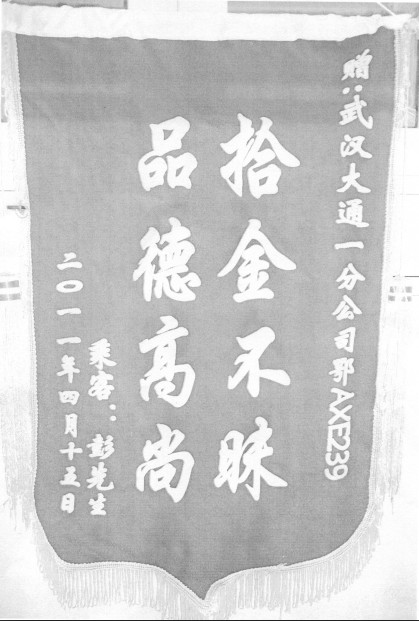 赠:武汉大通一分公司鄂AXE239
拾金不昧
品德高尚
乘客:彭先生
二〇一一年四月十五日